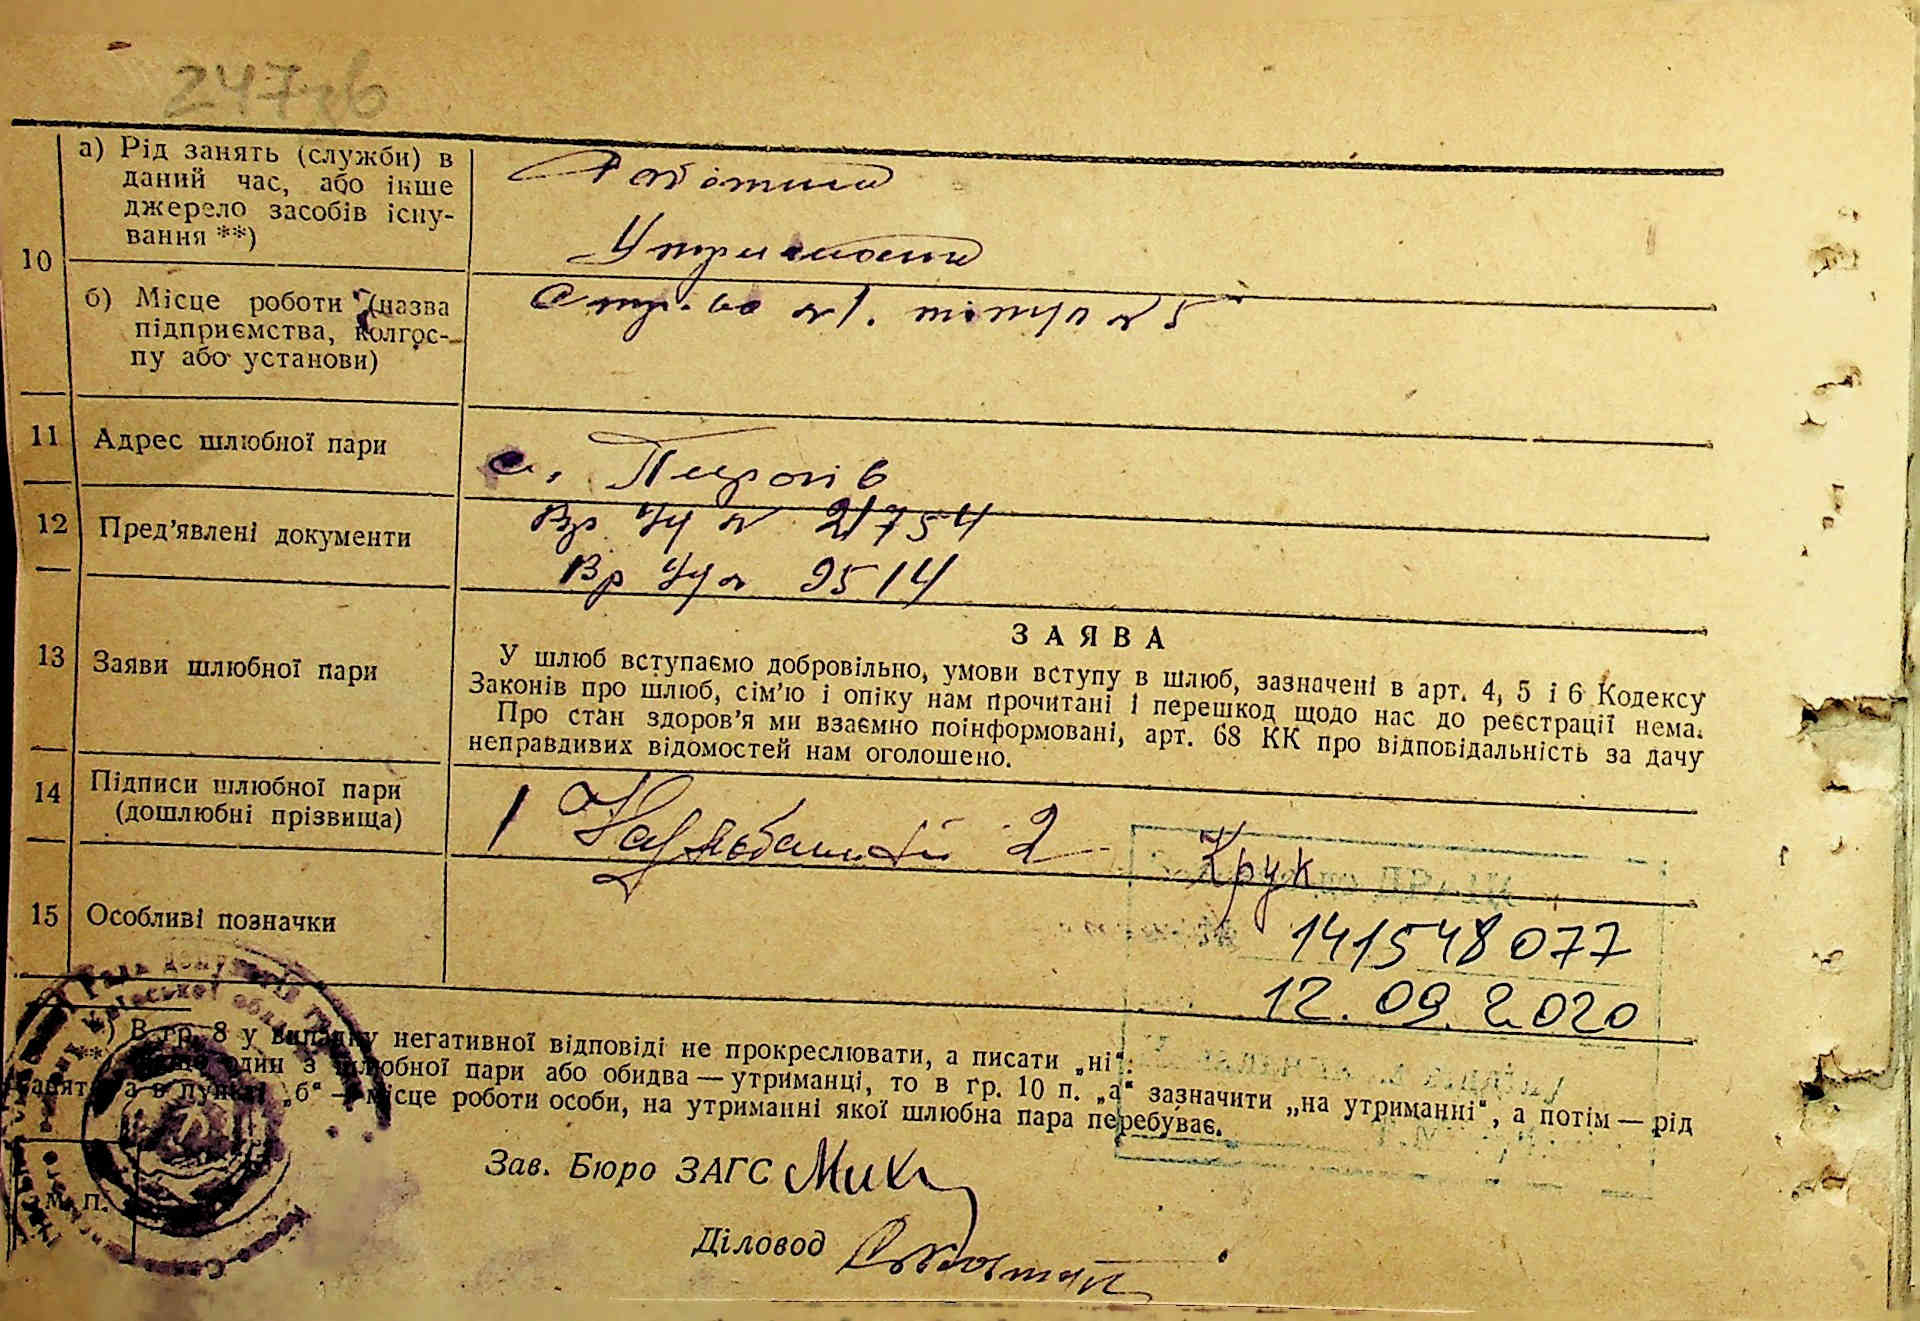 247зв
10
а) Рід занять (служби) в
даний час, або інше
джерело засобів існу-
вання **)
Утриманец
б) Місце роботи (назва
підприємства, колгос-
пу або установи)
11
Адрес шлюбної пари
с. Пирогів
12
Пред'явлені документи
21754
Вр 9514
13
Заяви шлюбної пари
ЗАЯВА
У шлюб вступаємо добровільно, умови вступу в шлюб, зазначені в арт. 4, 5 і 6 Кодексу
Законів про шлюб, сім'ю і опіку нам прочитані і перешкод щодо нас до реєстрації нема.
Про стан здоров'я ми взаємно поінформовані, арт. 68 КК про відповідальність за дачу
неправдивих відомостей нам оголошено.
14
Підписи шлюбної пари
(дошлюбні прізвища)
1 2 Крук
15
Особливі позначки
141548077
12.09.2020
*) В гр. 8 у випадку негативної відповіді не прокреслювати, а писати „ні“.
** один з шлюбної пари або обидва — утриманці, то в гр. 10 п. „а“ зазначити „на утриманні“, а потім — рід
занять, а в пункті „б“ — місце роботи особи, на утриманні якої шлюбна пара перебуває.
Зав. Бюро ЗАГС
М. П.
Діловод